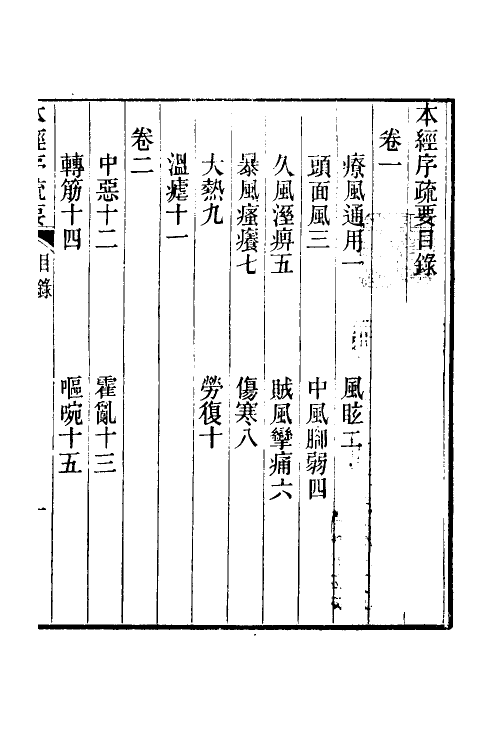 本經序疏要目錄
卷一
療風通用一　風眩二
頭面風三　中風腳弱四
久風溼痹五　賊風攣痛六
暴風瘙癢七　傷寒八
大熱九　勞復十
溫瘧十一
卷二
中惡十二　霍亂十三
轉筋十四　嘔啘十五
本經序疏要
目錄
一